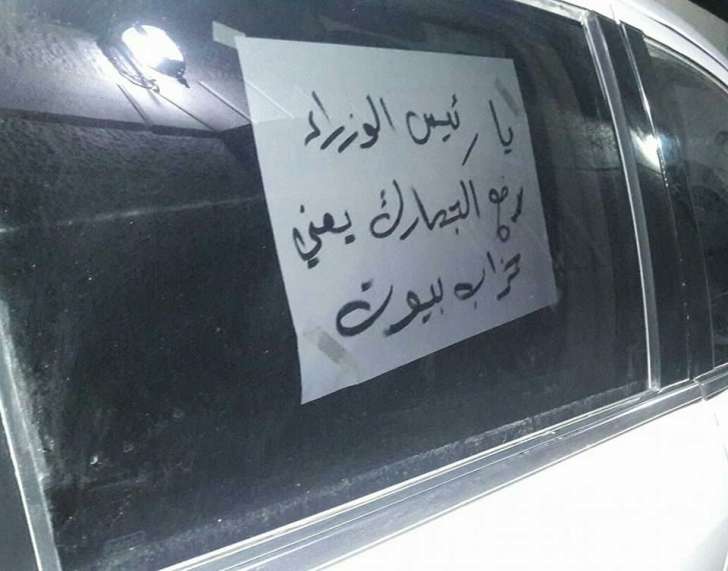 يا رئيس الوزراء
رفع الجمارك يعني
خراب بيوت